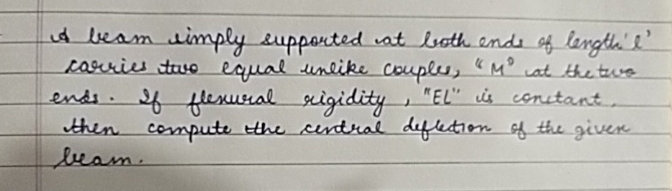 A beam simply supported at both ends of length 'l'
carries two equal unlike couples, "M" at the two
ends. If flexural rigidity, "EL" is constant,
then compute the central deflection of the given
beam.